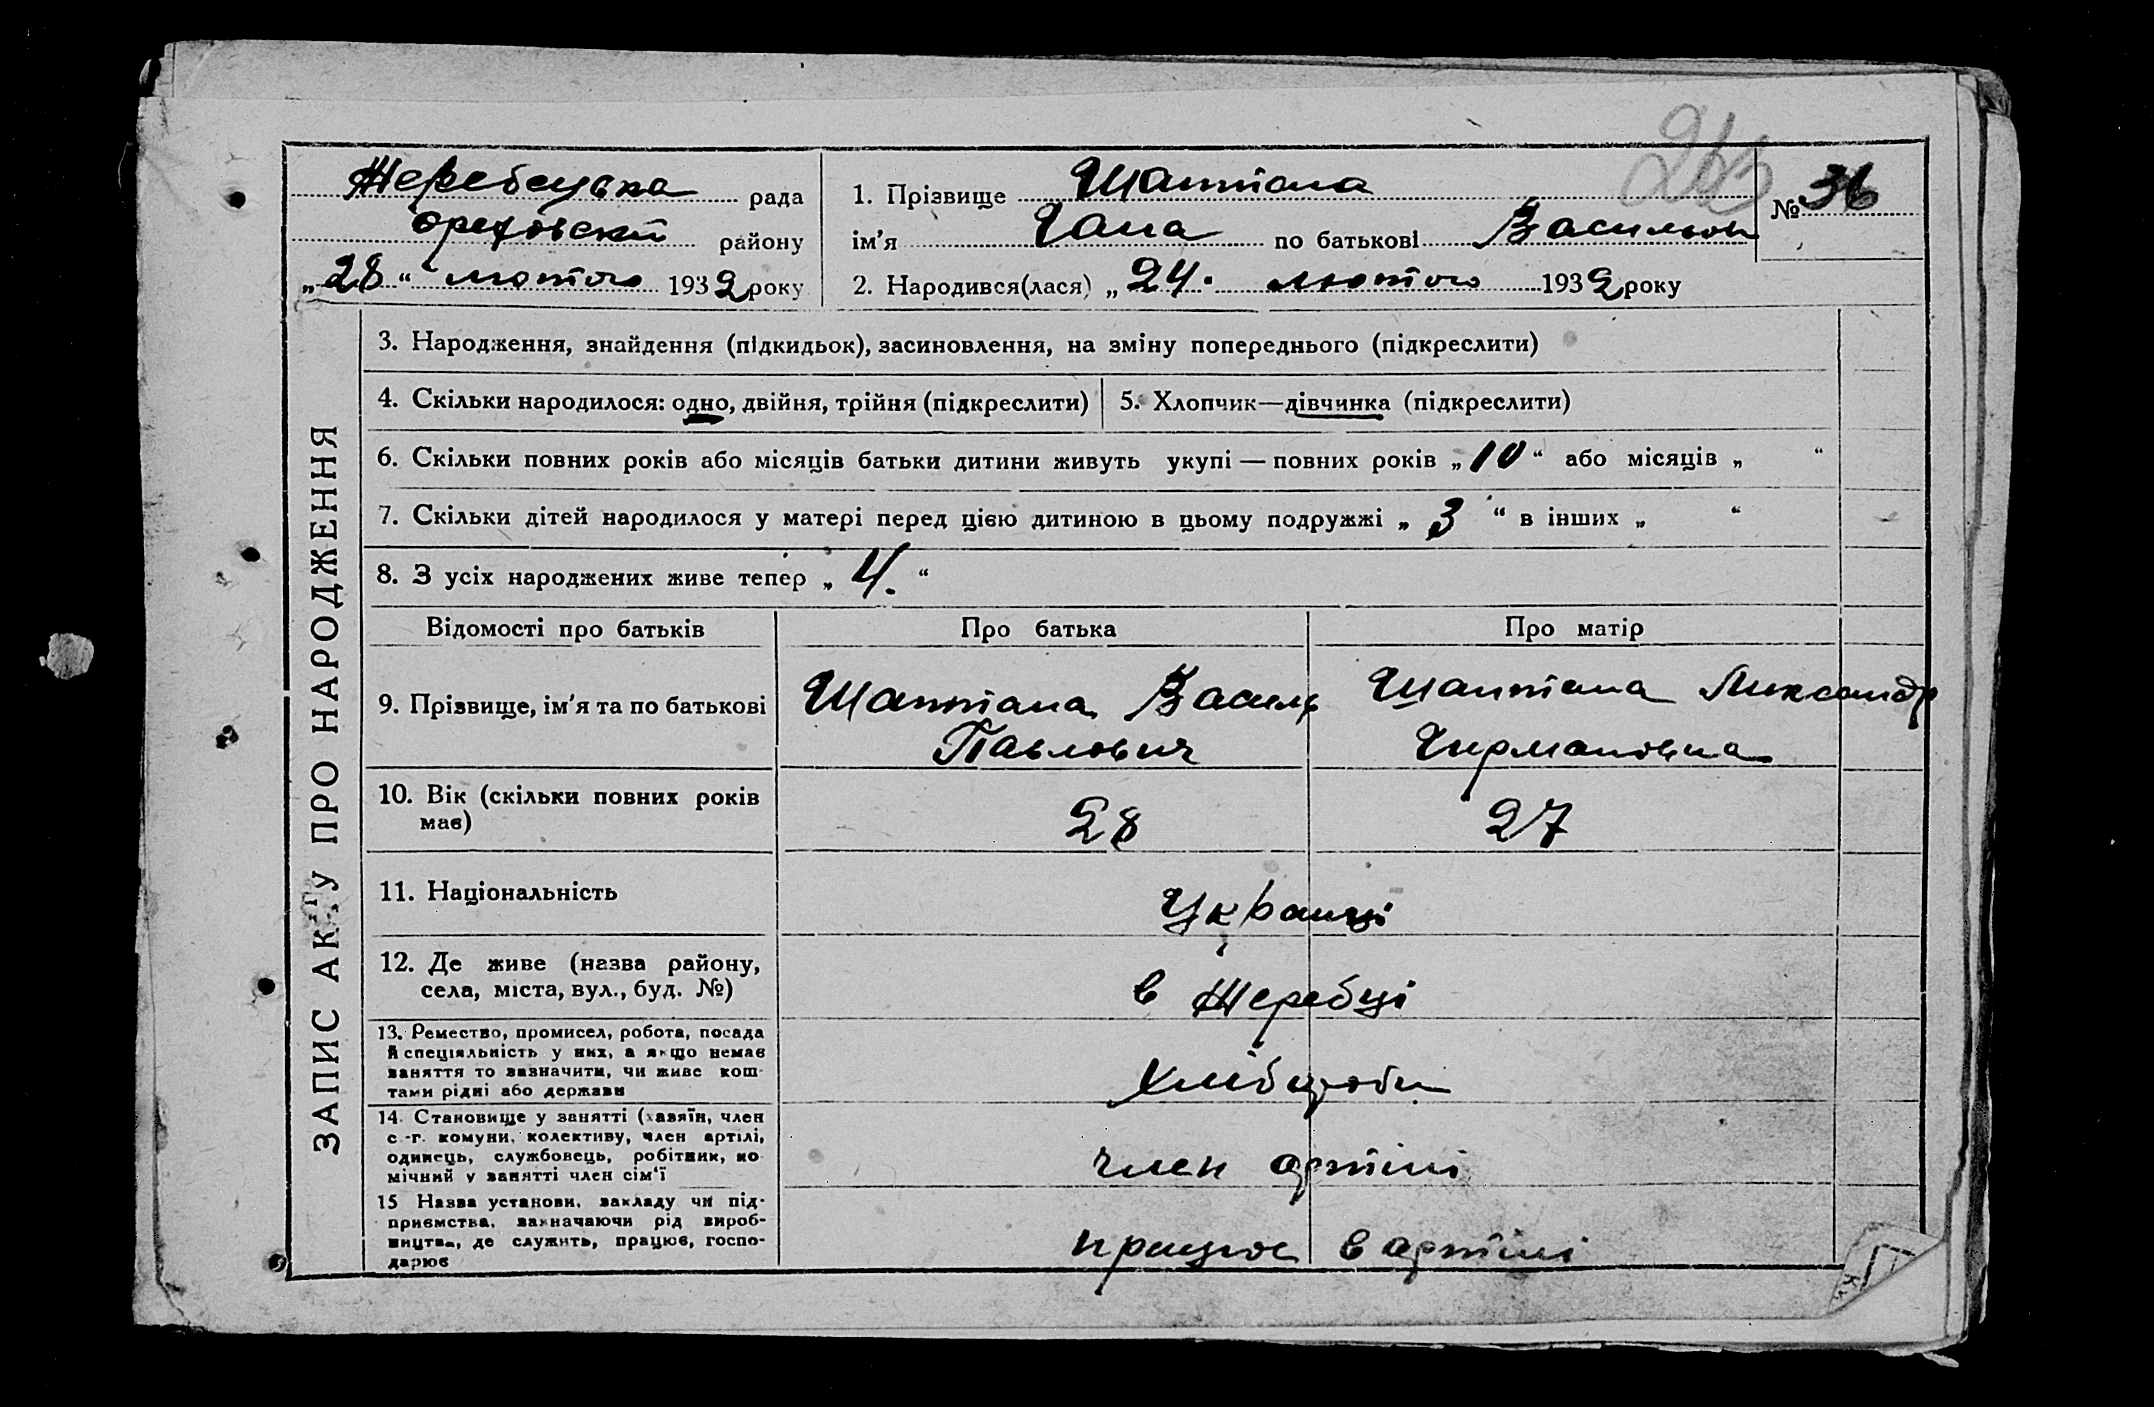 263
Жеребецька рада
Ореховский району
„28“ лютого 1932 року
1. Прізвище Шаптала
ім'я Гана по батькові Васильов
№ 36
2. Народився(лася) „24. лютого 1932 року
ЗАПИС АКТУ ПРО НАРОДЖЕННЯ
3. Народження, знайдення (підкидьок), засиновлення, на зміну попереднього (підкреслити)
4. Скільки народилося: одно, двійня, трійня (підкреслити) 5. Хлопчик—дівчинка (підкреслити)
6. Скільки повних років або місяців батьки дитини живуть укупі — повних років „10“ або місяців „ “
7. Скільки дітей народилося у матері перед цією дитиною в цьому подружжі „3“ в інших „ “
8. З усіх народжених живе тепер „4.“
Відомості про батьків Про батька Про матір
9. Прізвище, ім'я та по батькові
Шаптала Василь
Павлович
Шаптала
10. Вік (скільки повних років
має)
28 27
11. Національність
Українці
12. Де живе (назва району,
села, міста, вул., буд. №)
в Жеребці
13. Ремество, промисел, робота, посада
й спеціяльність у них, а якщо немає
заняття то зазначити, чи живе кош-
тами рідні або держави
Хліборобы
14. Становище у занятті (хазяїн, член
с.-г. комуни, колективу, член артілі,
одинець, службовець, робітник, по-
мічний у занятті член сім'ї
член артілі
15 Назва установи, закладу чи під-
приємства, зазначаючи рід вироб-
ництва, де служить, працює, госпо-
дарює
працює в артілі